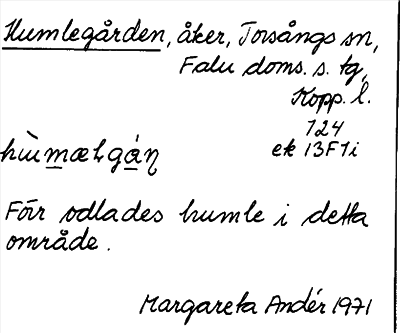 Humlegården, åker, Torsångs sn,
Falu doms. s. tg,
Kopp. l.
124
ek 13F1i
Förr odlades humle i detta
område.
Margareta Andér 1971